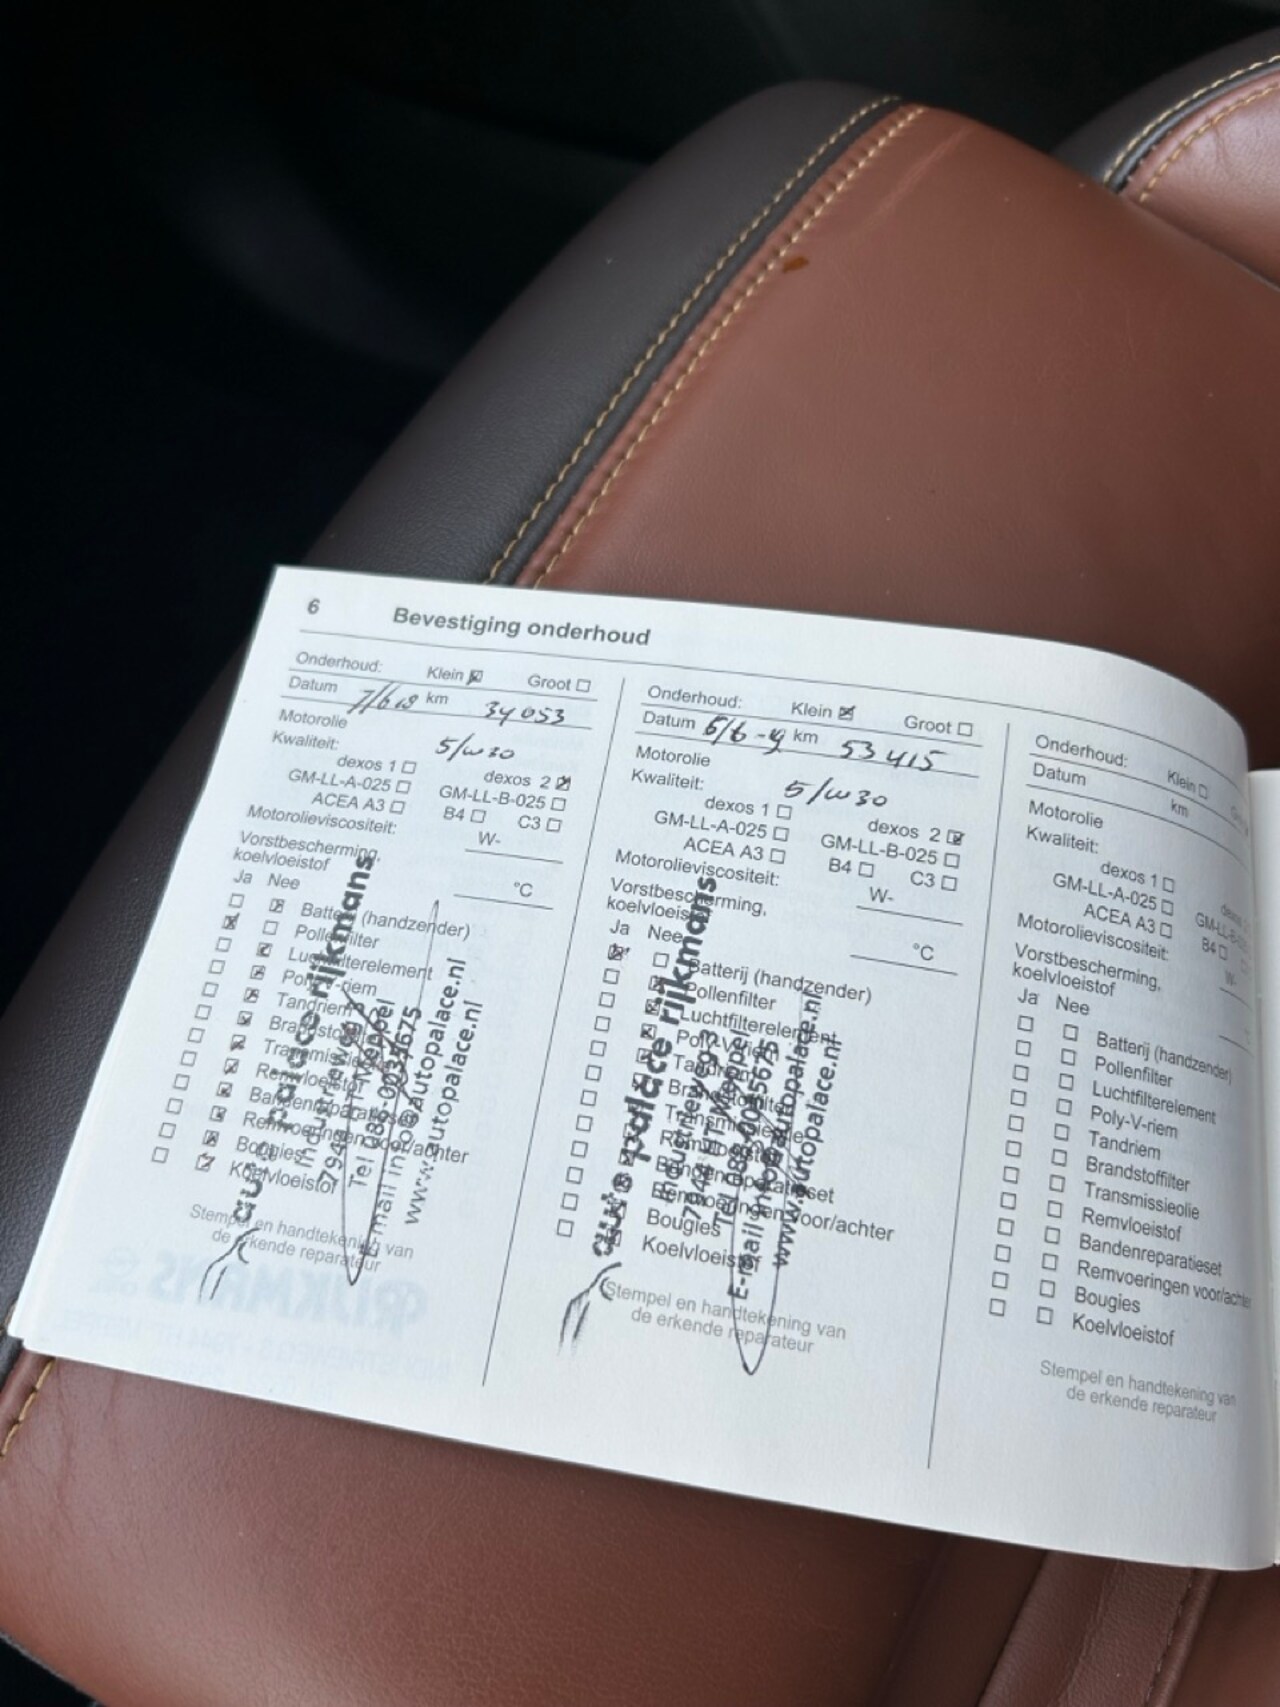 6 Bevestiging onderhoud
Onderhoud: Klein Groot
Datum 7/6 18 km 34 053
Motorolie
Kwaliteit: 5/w30
dexos 1 dexos 2
GM-LL-A-025 GM-LL-B-025
ACEA A3 B4 C3
Motorolieviscositeit: W-
Vorstbescherming,
koelvloeistof °C
Ja Nee
Batterij (handzender)
Pollenfilter
Luchtfilterelement
Poly-V-riem
Tandriem
Remvloeistof
Bandenreparatieset
Remvoeringen voor/achter
Bougies
Koelvloeistof
Stempel en handtekening van
de erkende reparateur
palace rijkmans
Industrieweg 3
Meppel
E-mail info@autopalace.nl
www.autopalace.nl
Onderhoud: Klein Groot
Datum 6/6-19 km 53 415
Motorolie
Kwaliteit: 5/w30
dexos 1 dexos 2
GM-LL-A-025 GM-LL-B-025
ACEA A3 B4 C3
Motorolieviscositeit: W-
Vorstbescherming,
koelvloeistof °C
Ja Nee
Batterij (handzender)
Pollenfilter
Luchtfilterelement
Poly-V-riem
Tandriem
Brandstoffilter
Transmissieolie
Remvloeistof
Bandenreparatieset
Remvoeringen voor/achter
Bougies
Koelvloeistof
Stempel en handtekening van
de erkende reparateur
palace rijkmans
Industrieweg 3
Meppel
E-mail info@autopalace.nl
www.autopalace.nl
Onderhoud: Klein
Datum km
Motorolie
Kwaliteit:
dexos 1
GM-LL-A-025
ACEA A3 B4
Motorolieviscositeit: W-
Vorstbescherming,
koelvloeistof
Ja Nee
Batterij (handzender)
Pollenfilter
Luchtfilterelement
Poly-V-riem
Tandriem
Brandstoffilter
Transmissieolie
Remvloeistof
Bandenreparatieset
Remvoeringen voor/achter
Bougies
Koelvloeistof
Stempel en handtekening van
de erkende reparateur